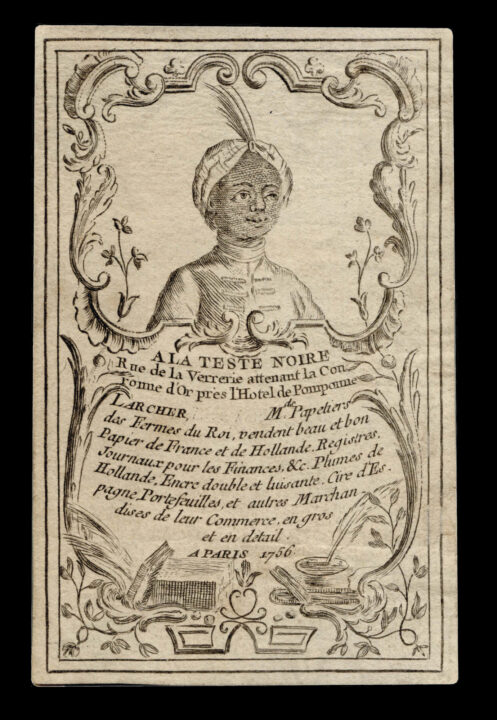 A LA TESTE NOIRE
Rue de la Verrerie attenant la Con
ronne d'Or pres l'Hotel de Pomponne
LARCHER, M.de Papetiers
des Fermes du Roi, vendent beau et bon
Papier de France et de Hollande, Registres,
Journaux pour les Finances, &c. Plumes de
Hollande, Encre double et luisante, Cire d'Es-
pagne, Portefeuilles, et autres Marchan
dises de leur Commerce, en gros
et en detail.
A PARIS 1756